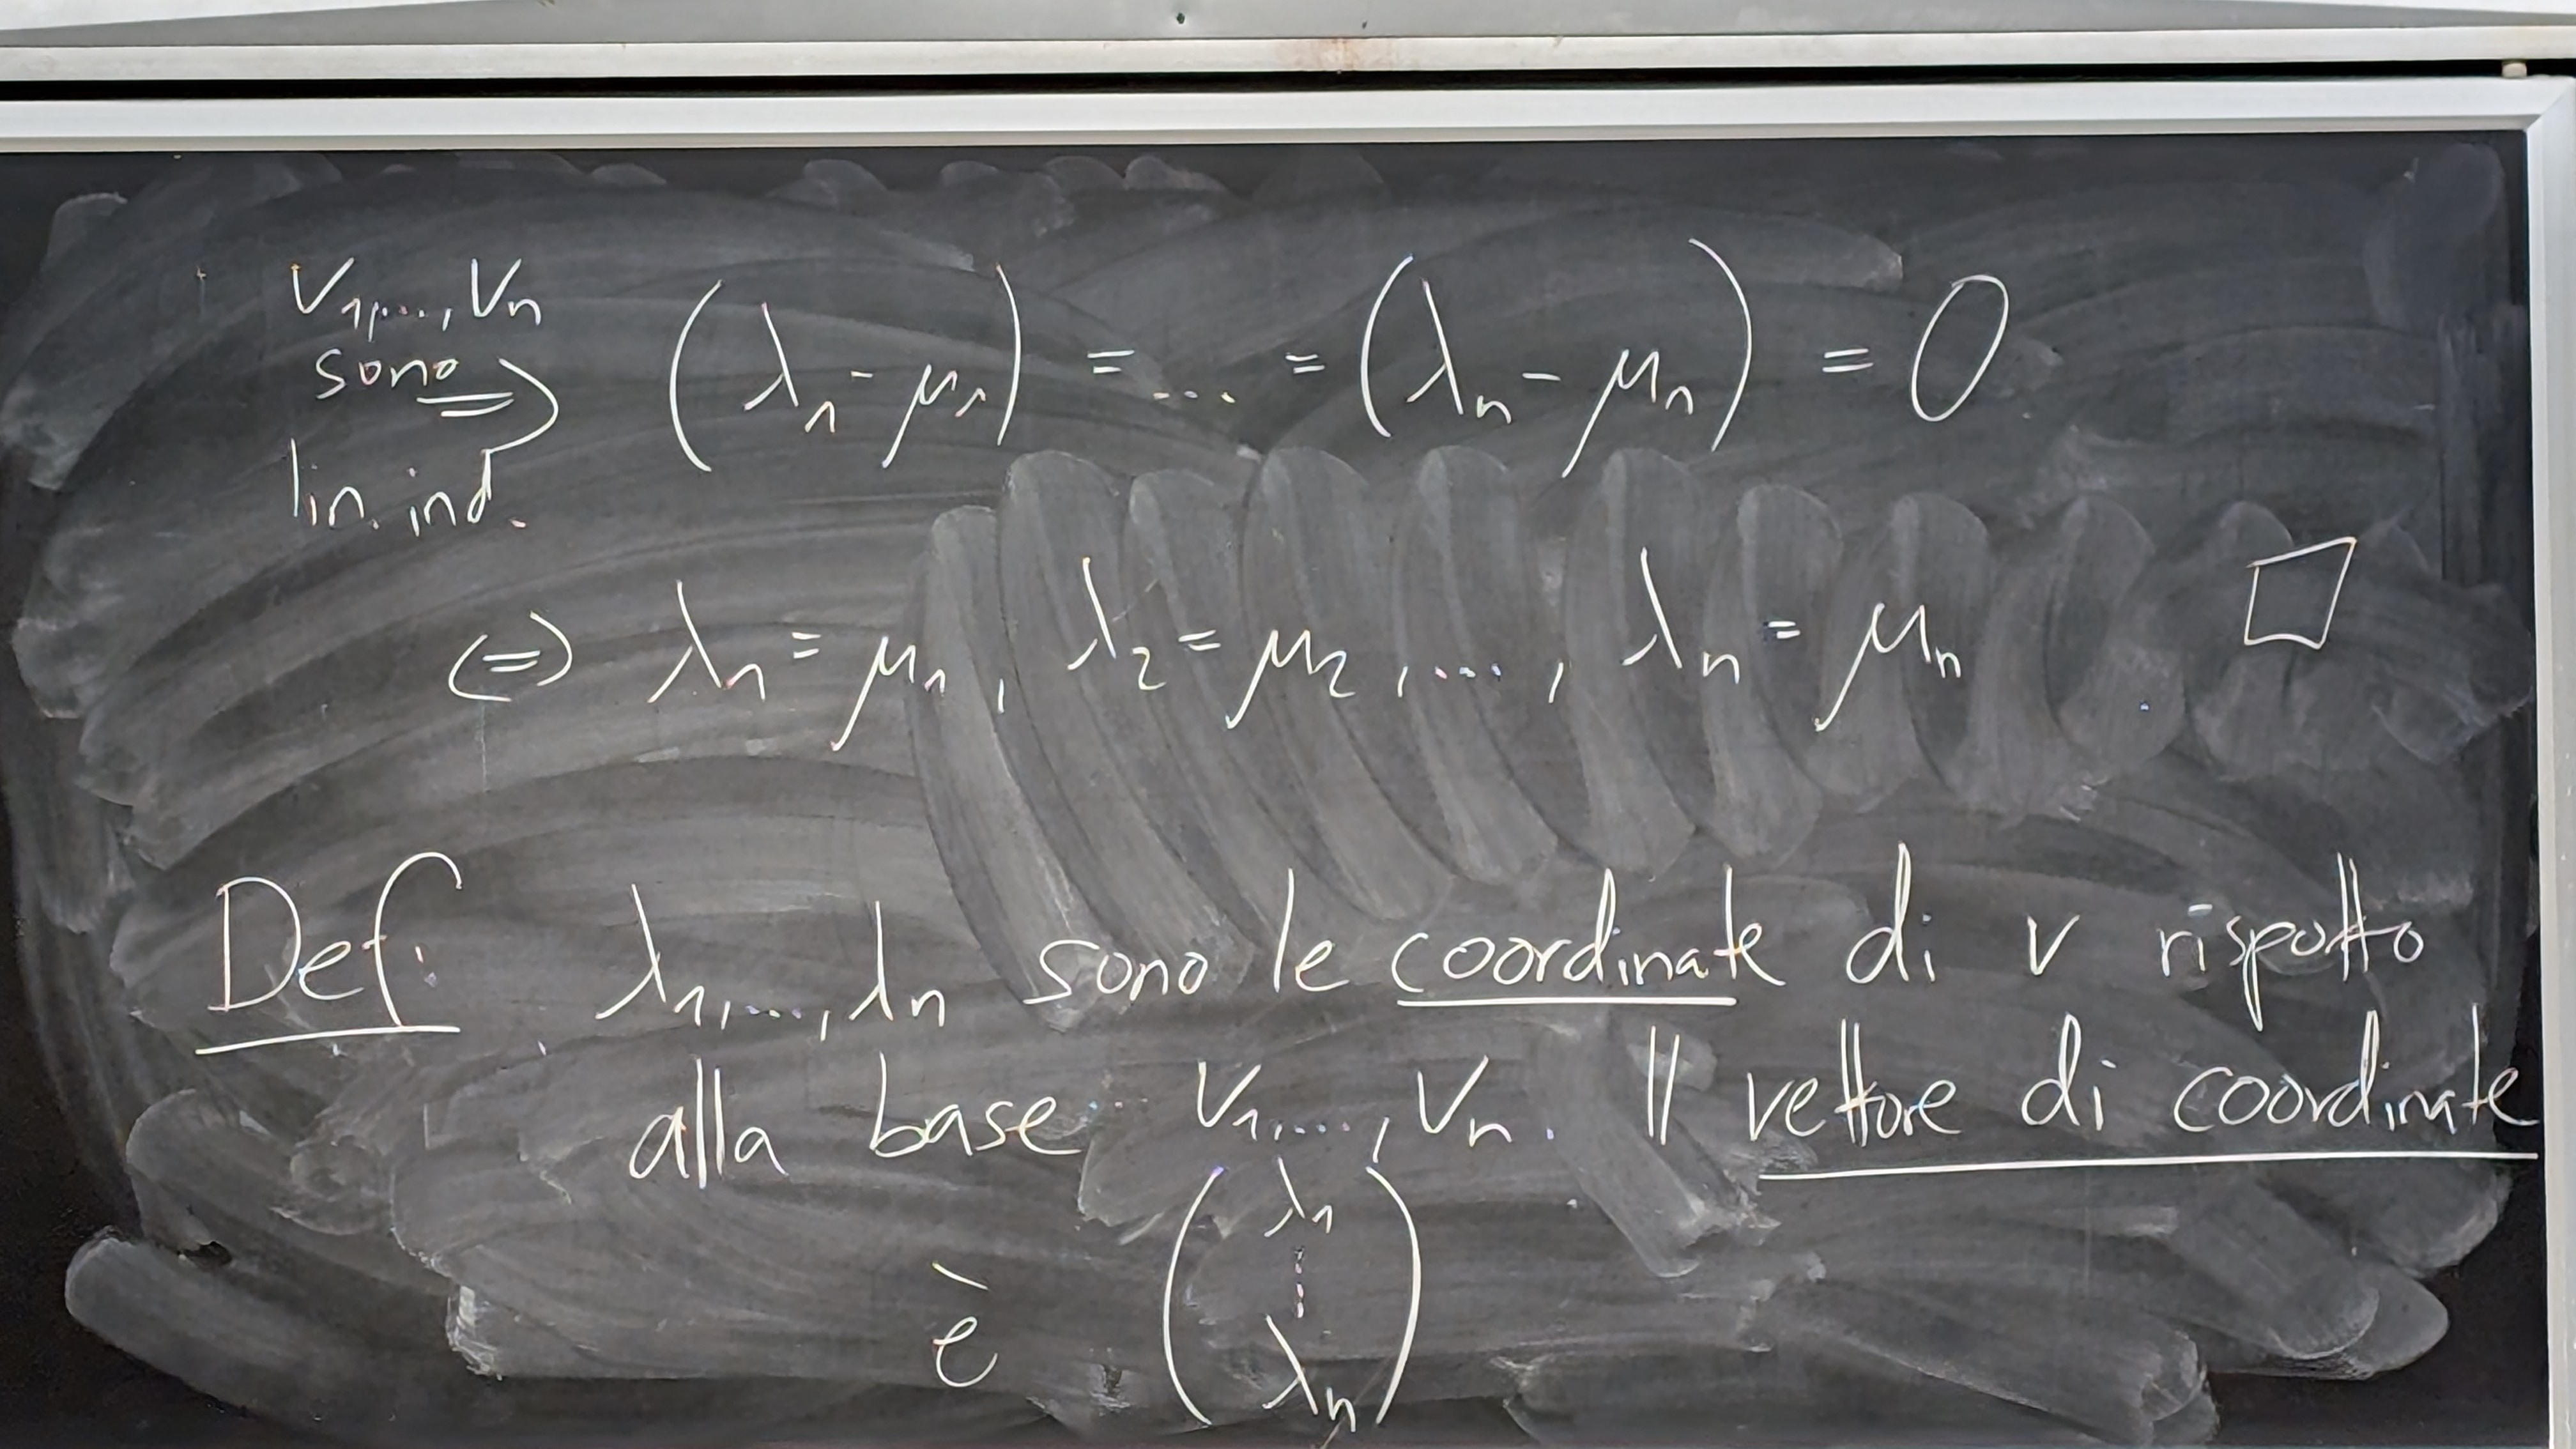 v₁,...,vₙ
sono
⟹ (λ₁ - μ₁) = ... = (λₙ - μₙ) = 0
lin. ind.
⟺ λ₁ = μ₁, λ₂ = μ₂, ..., λₙ = μₙ. □
Def: λ₁,...,λₙ sono le coordinate di v rispetto
alla base v₁,...,vₙ. Il vettore di coordinate
è (λ₁
⋮
λₙ)